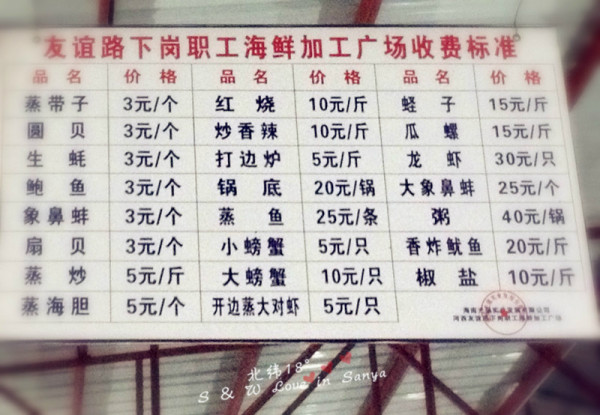 友谊路下岗职工海鲜加工广场收费标准
品名 价格 品名 价格 品名 价格
蒸带子 3元/个 红烧 10元/斤 蛏子 15元/斤
圆贝 3元/个 炒香辣 10元/斤 瓜螺 15元/斤
生蚝 3元/个 打边炉 5元/斤 龙虾 30元/只
鲍鱼 3元/个 锅底 20元/锅 大象鼻蚌 25元/个
象鼻蚌 3元/个 蒸鱼 25元/条 粥 40元/锅
扇贝 3元/个 小螃蟹 5元/只 香炸鱿鱼 20元/斤
蒸炒 5元/斤 大螃蟹 10元/只 椒盐 10元/斤
蒸海胆 5元/个 开边蒸大对虾 5元/只
河西友谊路下岗职工海鲜加工广场
北纬18°
S & W Love in Sanya